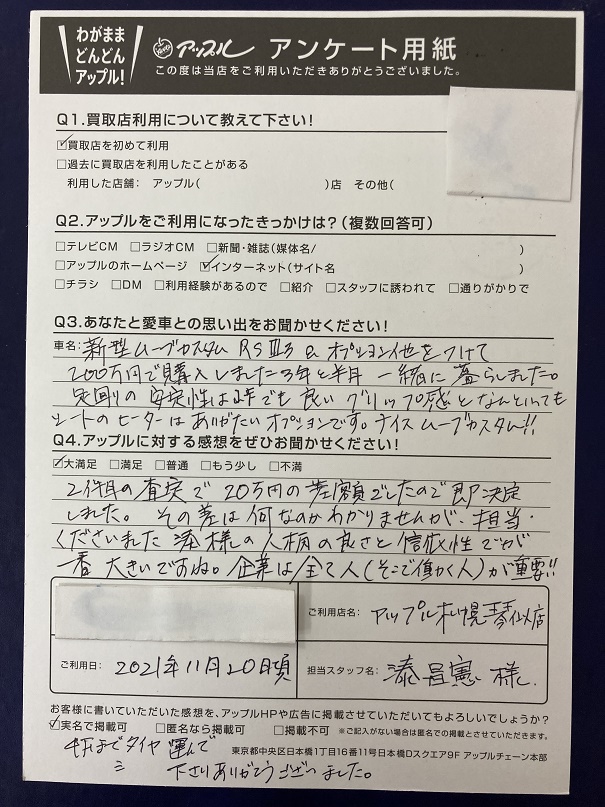 わがまま
どんどん
アップル!
アップル アンケート用紙
この度は当店をご利用いただきありがとうございました。
Q1.買取店利用について教えて下さい!
☑買取店を初めて利用
□過去に買取店を利用したことがある
利用した店舗: アップル( )店 その他(
Q2.アップルをご利用になったきっかけは?(複数回答可)
□テレビCM □ラジオCM □新聞・雑誌(媒体名/ )
□アップルのホームページ ☑インターネット(サイト名 )
□チラシ □DM □利用経験があるので □紹介 □スタッフに誘われて □通りがかりで
Q3.あなたと愛車との思い出をお聞かせください!
車名: 新型ムーブカスタム RS オプション他をつけて
200万円で購入しました3年と半月 一緒に暮らしました。
安定性は 良い グリップ感となんといっても
シートのヒーターはありがたいオプションです。ナイスムーブカスタム!!
Q4.アップルに対する感想をぜひお聞かせください!
☑大満足 □満足 □普通 □もう少し □不満
2件目の査定で20万円の差額でしたので即決定
しました。その差は何なのかわかりませんが、担当
くださいました湊様の人柄の良さと信頼性でが
一番大きいですね。企業は全て人(そこで働く人)が重要!!
ご利用店名: アップル札幌琴似店
ご利用日: 2021年11月20日頃
担当スタッフ名: 湊昌憲様
お客様に書いていただいた感想を、アップルHPや広告に掲載させていただいてもよろしいでしょうか?
☑実名で掲載可 □匿名なら掲載可 □掲載不可 ※ご記入がない場合は匿名での掲載とさせていただきます。
東京都中央区日本橋1丁目16番11号日本橋Dスクエア9F アップルチェーン本部
までタイヤ運んで
下さりありがとうございました。